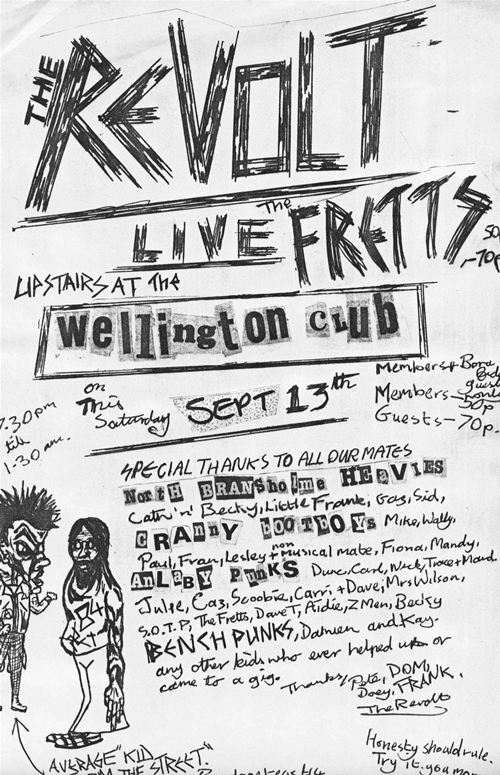 THE
REVOLT
LIVE The FRETTS
-70p
UPSTAIRS AT The
Wellington club
Members
on This Saturday SEPT 13th
Members - 50p
Guests - 70p.
7.30pm
till
1.30 am.
SPECIAL THANKS TO ALL OUR MATES
North BRANsholme HEAVIES
Cath 'n' Becky, Little Frank, Gaz, Sid,
GRANNY BOOTBOYS Mike, Wally,
Paul, Fran, Lesley + non musical mate, Fiona, Mandy,
ANLABY PUNKS Dunc, Card, Nick, Trace + Maud
Julie, Caz, Scoobie, Carri + Dave, Mrs Wilson,
S.O.T.P, The Fretts, Dave T, Aidie, Z Men, Becky
BENCH PUNKS, Damien and Kay.
any other kids who ever helped us or
came to a gig.
Thanks, Pete, DOM,
Doey, FRANK.
The Revolt
Honesty should rule.
Try it. you
"AVERAGE" KID
THE STREET."